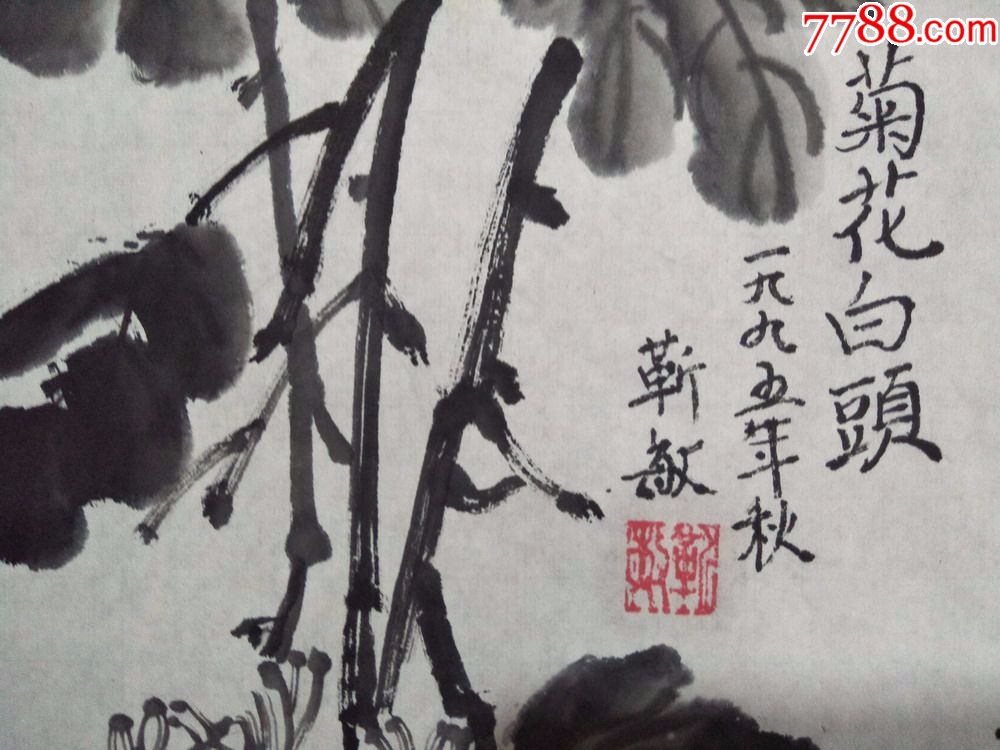 7788.com
菊花白頭
一九九五年秋
靳敏